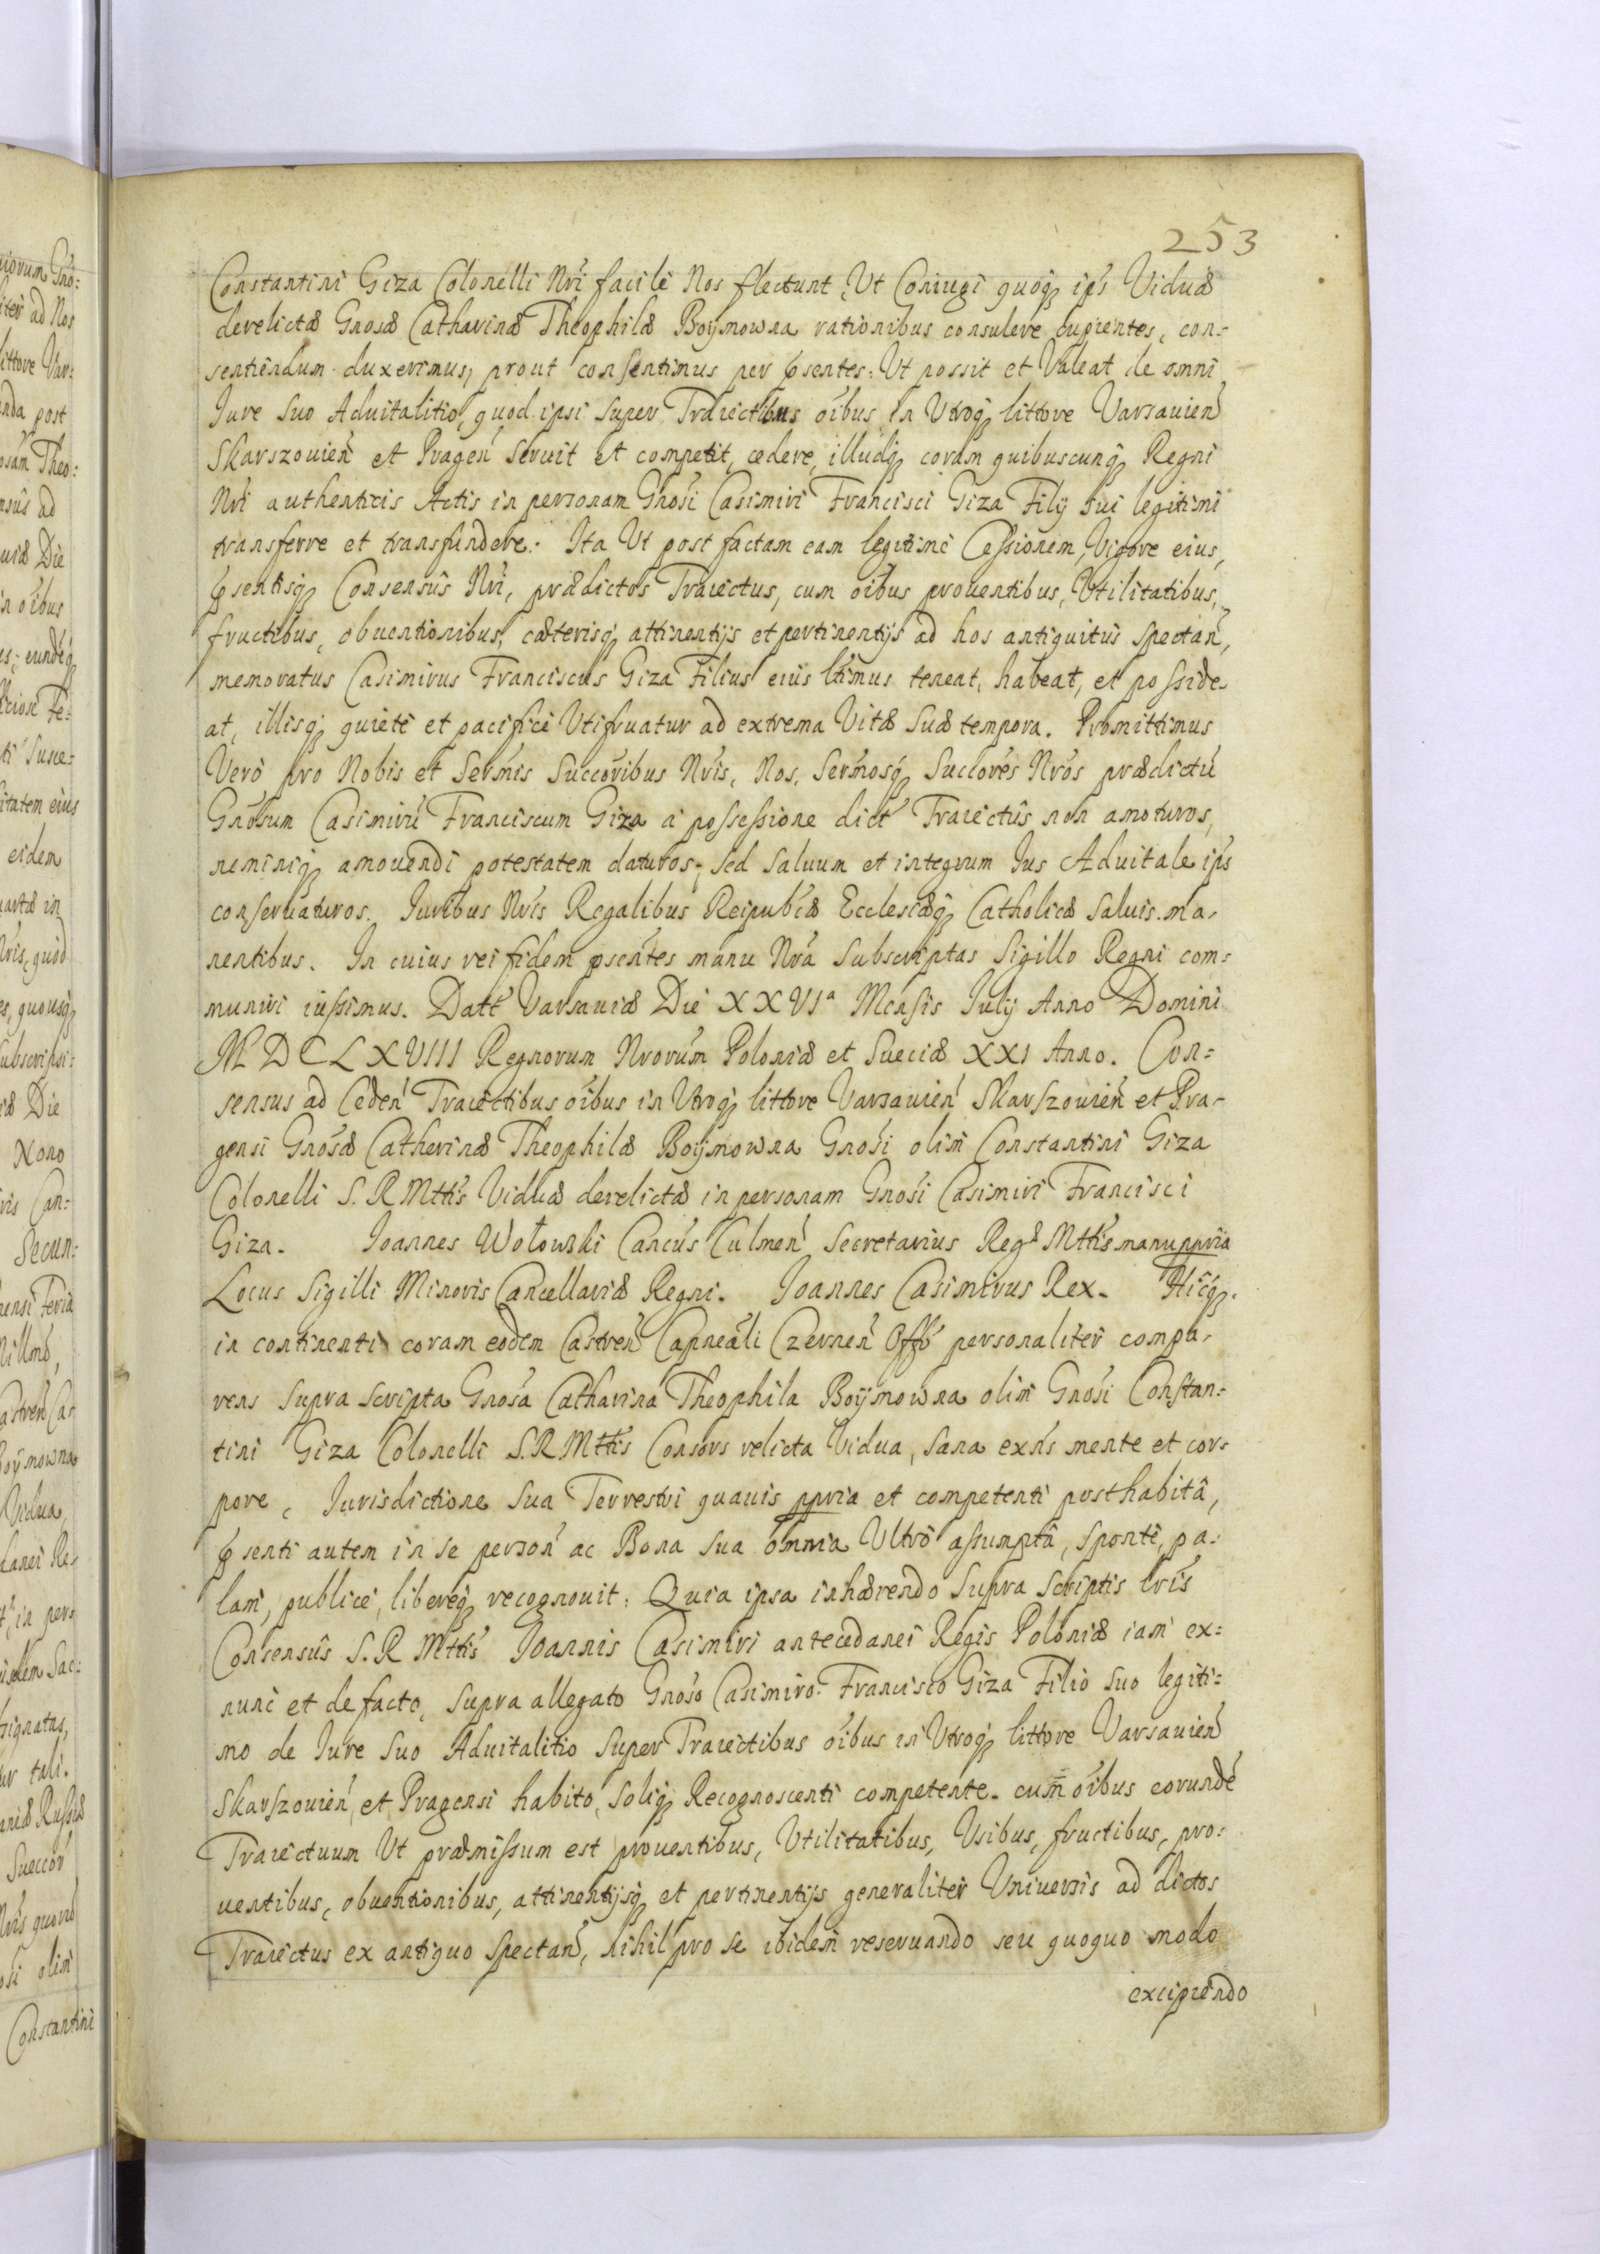 253
Constantini Giza Colonelli Nrī facilè Nos flectunt, Ut Coniugi quoq₃ ips Viduæ
derelictæ Gnosæ Catharinæ Theophilæ Boÿmowna rationibus consulere cupientes, con-
sentiendum duxerimus, prout consentimus per psentes: Ut possit et Valeat de omni
Iure suo Aduitalitio, quod ipsi super Traiectibus oībus in Utroq₃ littore Varsauień
Skarszouień et Prageń seruit et competit, cedere, illudq₃ coram quibuscunq₃ Regni
Nrī authenticis Actis in personam Gnosi Casimiri Francisci Giza Filÿ sui legitimi
transferre et transfundere. Ita Ut post factam eam legitimè Cessionem, Vigore eius,
psentisq₃ Consensûs Nrī, prædictos Traiectus, cum oībus prouentibus, Utilitatibus,
fructibus, obuentionibus, cæterisq₃ attinentÿs et pertinentÿs ad hos antiquitùs spectań,
memoratus Casimirus Franciscus Giza Filius eius ltīmus teneat, habeat, et posside-
at, illisq₃ quietè et pacificè Utifruatur ad extrema Vitæ suæ tempora. Promittimus
Verò pro Nobis et Sermīs Succoribus Nrīs, Nos, Sermosq₃ Succores Nrōs prædictū
Gnosum Casimirū Franciscum Giza à possessione dict Traiectûs non amoturos,
neminiq₃ amouendi potestatem daturos, sed saluum et integrum Ius Aduitale ips
conseruaturos. Iuribus Nrīs Regalibus Reipubcæ Ecclesiæq₃ Catholicæ saluis ma-
nentibus. In cuius rei fidem psentes manu Nrā subscriptas Sigillo Regni com-
muniri iussimus. Datt Varsauiæ Die XXVIᵃ Mensis Iulÿ Anno Domini
MDCLXVIII Regnorum Nrorum Poloniæ et Sueciæ XXI Anno. Con-
sensus ad Cedeń Traiectibus oībus in Utroq₃ littore Varsauień Skarszouień et Pra-
gensi Gnosæ Catherinæ Theophilæ Boÿmowna Gnosi olim Constantini Giza
Colonelli S. R Mttīs Viduæ derelictæ in personam Gnosi Casimiri Francisci
Giza. Ioannes Wołowski Cancūs Culmeń Secretarius Regæ Mttīs manu ppria
Locus Sigilli Minoris Cancellariæ Regni. Ioannes Casimirus Rex. Hicq₃
in continenti coram eodem Castreń Capneāli Czerneń Offō personaliter compa-
rens supra scripta Gnosa Catharina Theophila Boÿmowna olim Gnosi Constan-
tini Giza Colonelli S.R Mttīs Consors relicta Vidua, sana exns mente et cor-
pore, Iurisdictione sua Terrestri quauis ppria et competenti posthabitâ,
psenti autem in se person̄ ac Bona sua omnia Ultrò assumptâ, spontè, pa-
lam, publicè, liberèq₃ recognouit: Quia ipsa inhærendo supra scriptis lrīs
Consensûs S.R Mttīs Ioannis Casimiri antecedanei Regis Poloniæ iam ex-
nunc et de facto, supra allegato Gnoso Casimiro Francisco Giza Filio suo legiti-
mo de Iure suo Aduitalitio super Traiectibus oībus in Utroq₃ littore Varsauień
Skarszouień et Pragensi habito, soliq₃ Recognoscenti competente. cum oībus eorundē
Traiectuum Ut præmissum est prouentibus, Utilitatibus, Usibus, fructibus, pro-
uentibus, obuentionibus, attinentÿsq₃ et pertinentÿs generaliter Uniuersis ad dictos
Traiectus ex antiquo spectań, nihil pro se ibidem reseruando seu quoquo modo
excipiendo